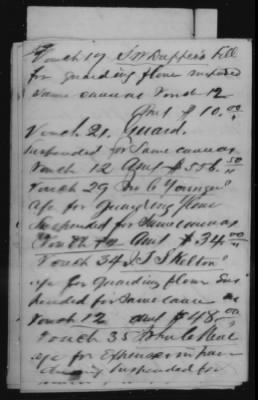 Vouch 19 J W Dupper's bill
for guarding flour suspended
same cause as Vouch 12
Amt $10.00
Vouch. 21. Guard.
suspended for same cause as
Vouch 12 Amt $556.50
Vouch 29 Younger
a/c for guarding flour
Suspended for same cause as
Vouch 12 Amt $34.00
Vouch 34 J. S Skelton
a/c for guarding flour Sus
pended for Same cause as
Vouch 12 amt $48.00
Vouch 35
a/c for Expenses in
Suspended for